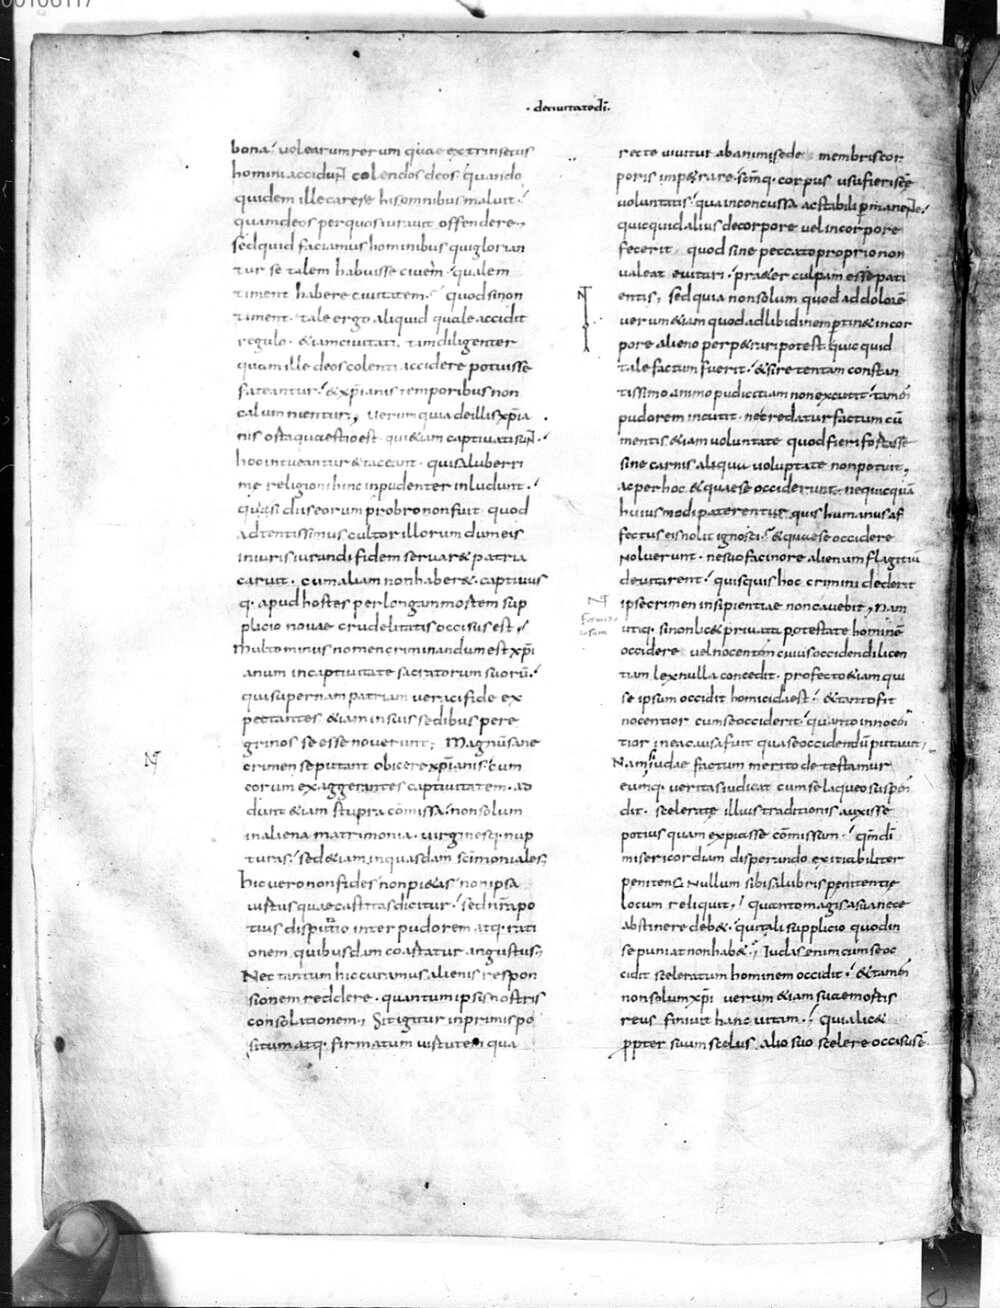 00106117
· deciuitatedī ·
bona · uel earum rerum quae extrinsecus
homini accidunt colendos deos · quando
quidem ille carere his omnibus maluit ·
quam deos per quos iurauit offendere ·
sed quid faciamus hominibus qui glorian
tur se talem habuisse ciuem · qualem
timent habere ciuitatem · quod si non
timent · tale ergo aliquid quale accidit
regulo · &iam ciuitati · tam diligenter
quam ille deos colenti accidere potuisse
fateantur · & xp̄ianis temporibus non
calumnientur, uerum quia de illis xp̄ia
nis orta quaestio est · qui &iam captiuati sunt ·
hoc intueantur & taceant · qui saluberri
me religioni hinc inpudenter inludunt ·
quasi diis eorum probro non fuit · quod
adtentissimus cultor illorum dum eis
iuris iurandi fidem seruar& patria
caruit · cum aliam non haber& · captiuus
q· apud hostes per longam mortem sup
plicio nouae crudelitatis occisus est ·
multo minus nomen criminandum est xp̄i
anum in captiuitate sacratorum suorū ·
qui supernam patriam ueraci fide ex
pectantes &iam in suis sedibus pere
grinos se esse nouerunt; Magnūsane
crimen se putant obicere xp̄ianis · cum
eorum exaggerantes captiuitatem · ad
dunt &iam stupra cōmissa · non solum
in aliena matrimonia · uirginesq· nup
turas · sed &iam in quasdam scīmoniales;
hic uero non fides non pi&as · non ipsa
uirtus quae castitas dicitur · sed nr̄a po
tius disputatio inter pudorem atq· rati
onem quibusdam coartatur angustiis;
Nec tantum hic curamus alienis respon
sionem reddere · quantum ipsis nostris
consolationem; Sit igitur inprimis po
situm atq· firmatum uirtutem qua
recte uiuitur ab animi sede · membris cor
poris imperare · scm̄q· corpus usu fieri scē
uoluntatis · qua inconcussa ac stabili permanente ·
quicquid alius de corpore uel in corpore
fecerit · quod sine peccato proprio non
ualeat euitari · pra&er culpam esse pati
entis; sed quia non solum quod ad dolorē
uerum &iam quod ad libidinem pertin& in cor
pore alieno perp&rari potest · quicquid
tale factum fuerit · & si retentam constan
tissimo animo pudicitiam non excutit · tamen
pudorem incutit · ne credatur factum cū
mentis &iam uoluntate quod fieri fortasse
sine carnis aliqua uoluptate non potuit;
ac per hoc & quae se occiderunt · ne quicquā
huius modi paterentur · quis humanus af
fectus eis nolit ignosci · & quae se occidere
noluerunt · ne suo facinore alienum flagitiū
deuitarent · quisquis hoc crimini dederit
ipse crimen insipientiae non cauebit; Nam
utiq· si non lic& priuata potestate hominē
occidere uel nocentem cuius occidendi licen
tiam lex nulla concedit · profecto &iam qui
se ipsum occidit homicida est · & tanto fit
nocentior cum se occiderit · quanto innocen
tior in ea causa fuit qua se occidendū putauit;
Nam si iudae factum merito detestamur
eumq· ueritas iudicat cum se laqueo suspen
dit · sceleratę illius traditionis auxisse
potius quam expiasse cōmissum · qm̄ dī
misericordiam disperando exitiabiliter
penitens nullum sibi salubris penitentię
locum reliquit; quanto magis a sua nece
abstinere deb& · qui tali supplicio quod in
se puniat non hab&; Iudas enim cum se oc
cidit sceleratum hominem occidit · & tamen
non solum xp̄i uerum &iam suae mortis
reus finiuit hanc uitam · quia lic&
propter suum scelus alio suo scelere occisus ē ·